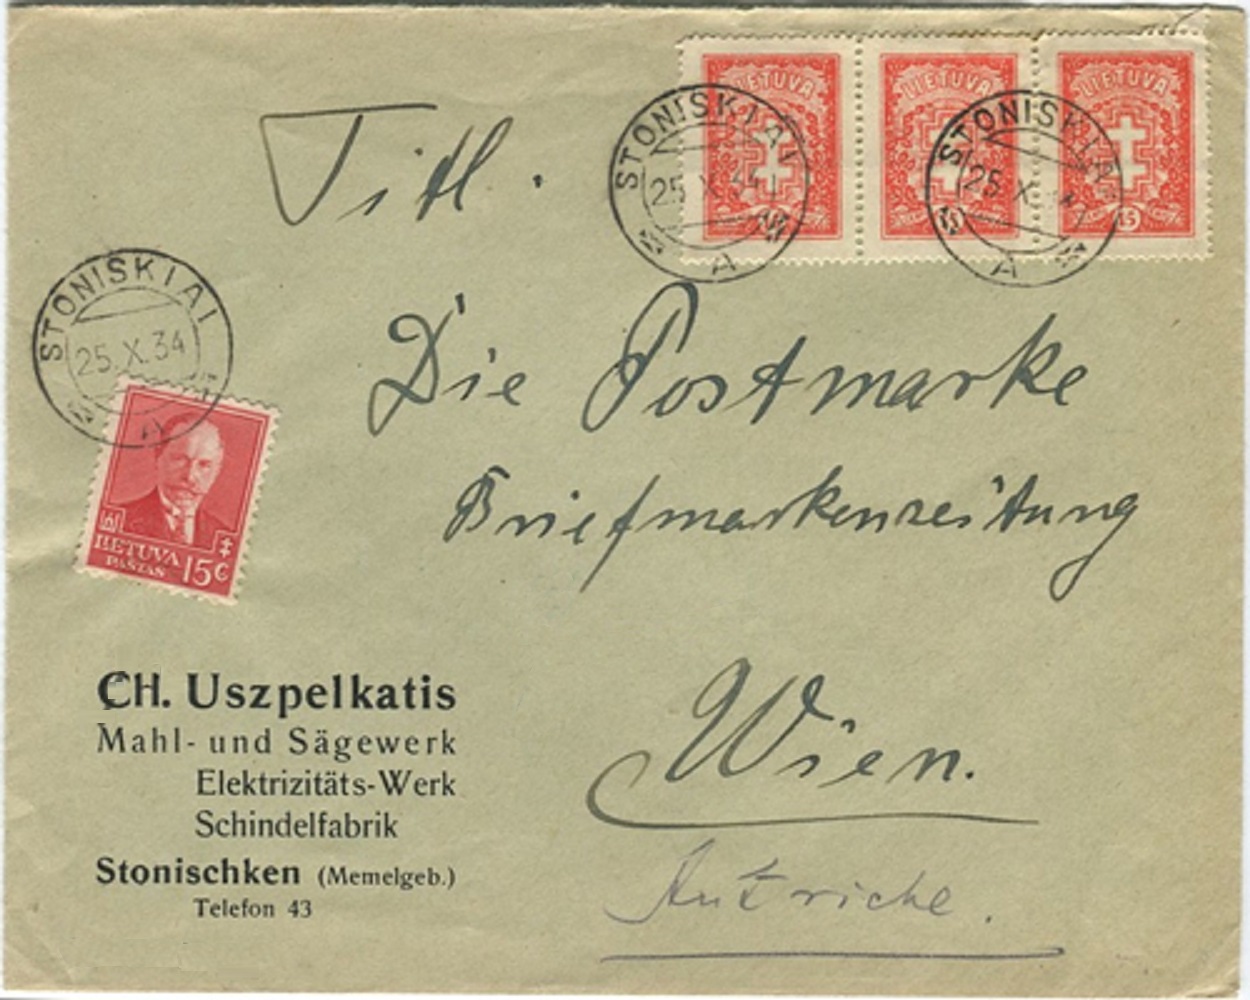 LIETUVA LIETUVA LIETUVA
15
STONISKIAI
25.X.34
A
STONISKIAI
25.X.34
A
Titl.
STONISKIAI
25.X.34
A
Die Postmarke
Briefmarkenzeitung
LIETUVA
PAŠTAS
15 C
Wien.
Autriche.
CH. Uszpelkatis
Mahl- und Sägewerk
Elektrizitäts-Werk
Schindelfabrik
Stonischken (Memelgeb.)
Telefon 43